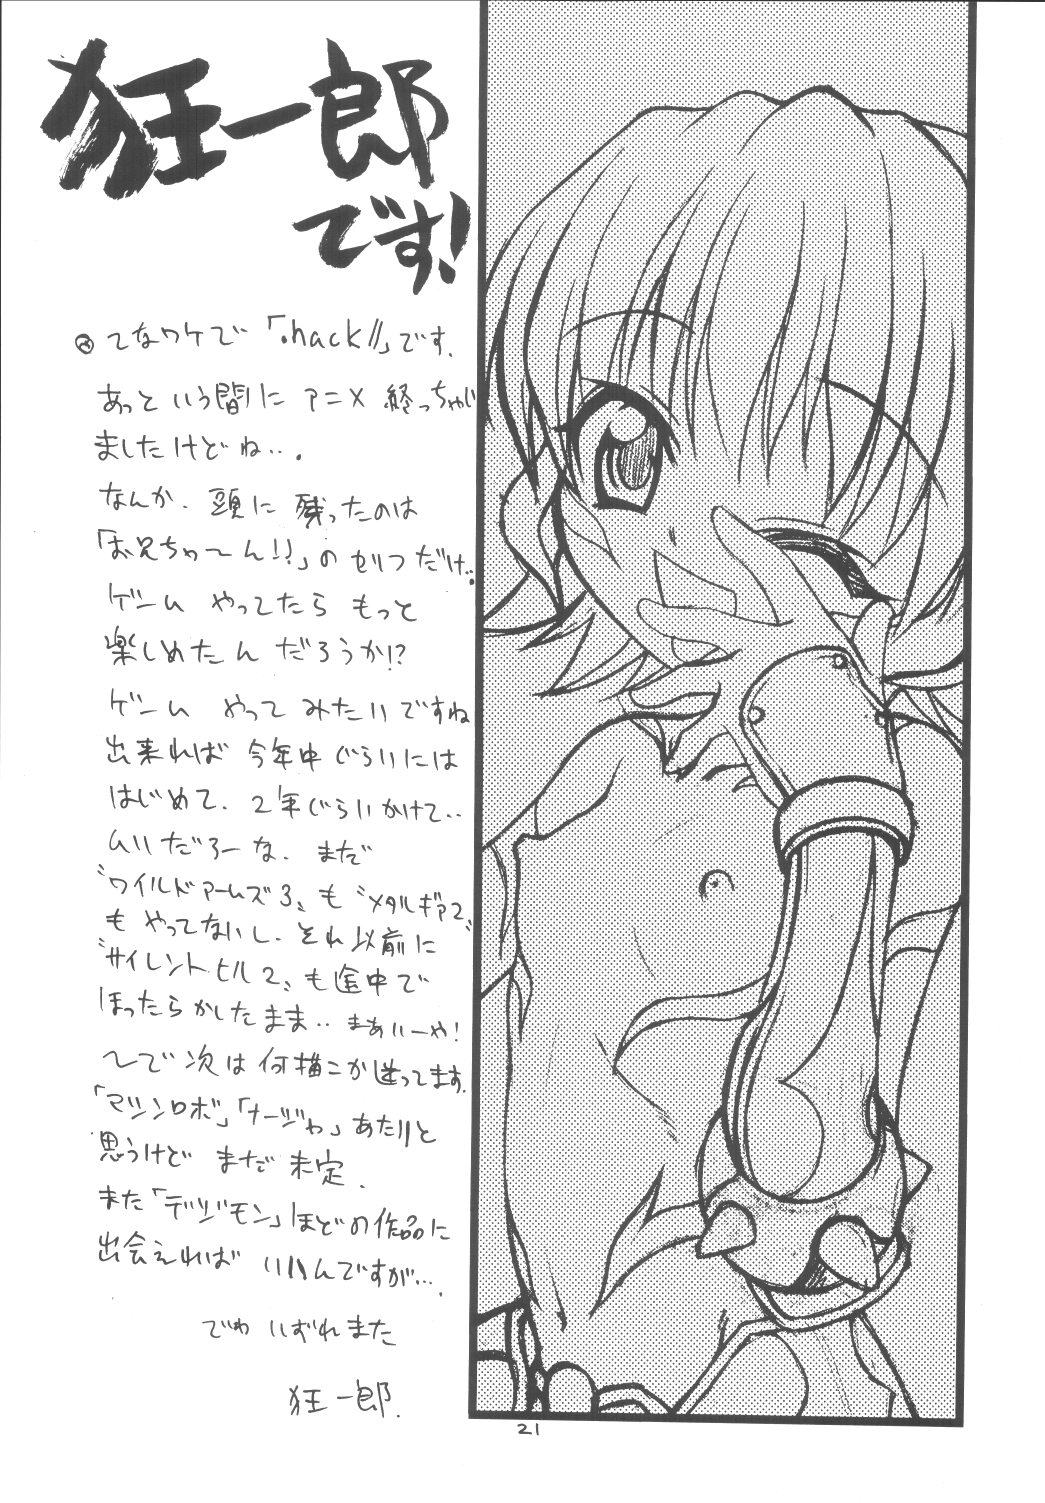 狂一郎
です!
てなワケで「.hack//」です.
あっという間にアニメ終っちゃい
ましたけどね‥.
なんか.頭に残ったのは
「お兄ちゃ〜ん!?」のセリフだけ.
ゲーム やってたら もっと
楽しめたんだろうか!?
ゲーム やってみたいですね
出来れば 今年中ぐらいには
はじめて.2年ぐらいかけて‥
ムリだろーな. まだ
〝ワイルドアームズ3〟も〝メタルギア2〟
も やってないし.それ以前に
〝サイレントヒル2〟も途中で
ほったらかしたまま‥まぁいーや!
〜で次は何描こか迷ってます.
「マシンロボ」「ナージャ」あたりと
思うけど まだ未定.
また「デジモン」ほどの作品に
出会えれば いいんですが….
でわ いずれまた
狂一郎.
21